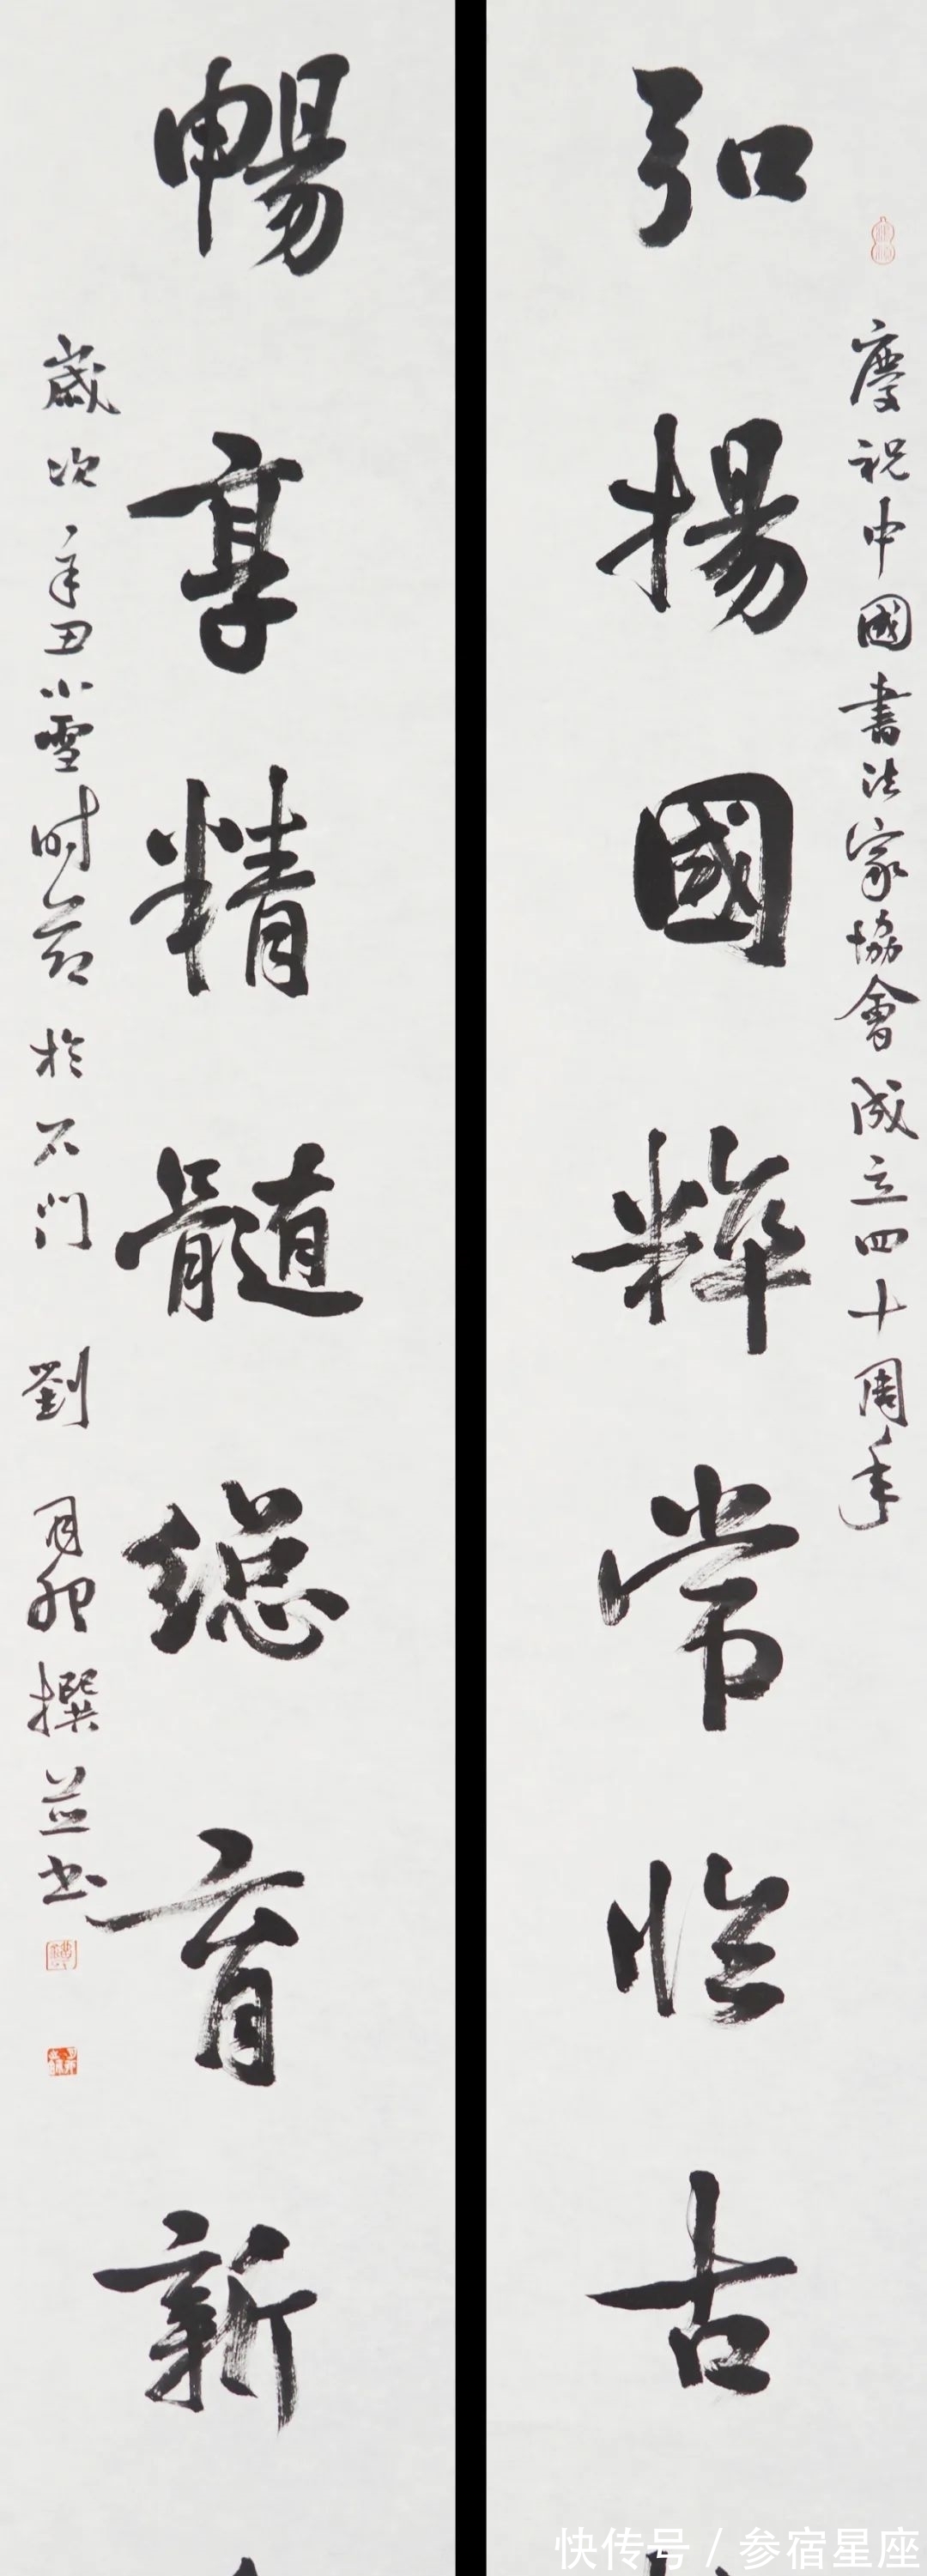 慶祝中國書法家協會成立四十周年
弘揚國粹常临古
暢享精髓總育新
歲次辛丑小雪时节於石门 劉月卯撰並书
快传号 / 参宿星座